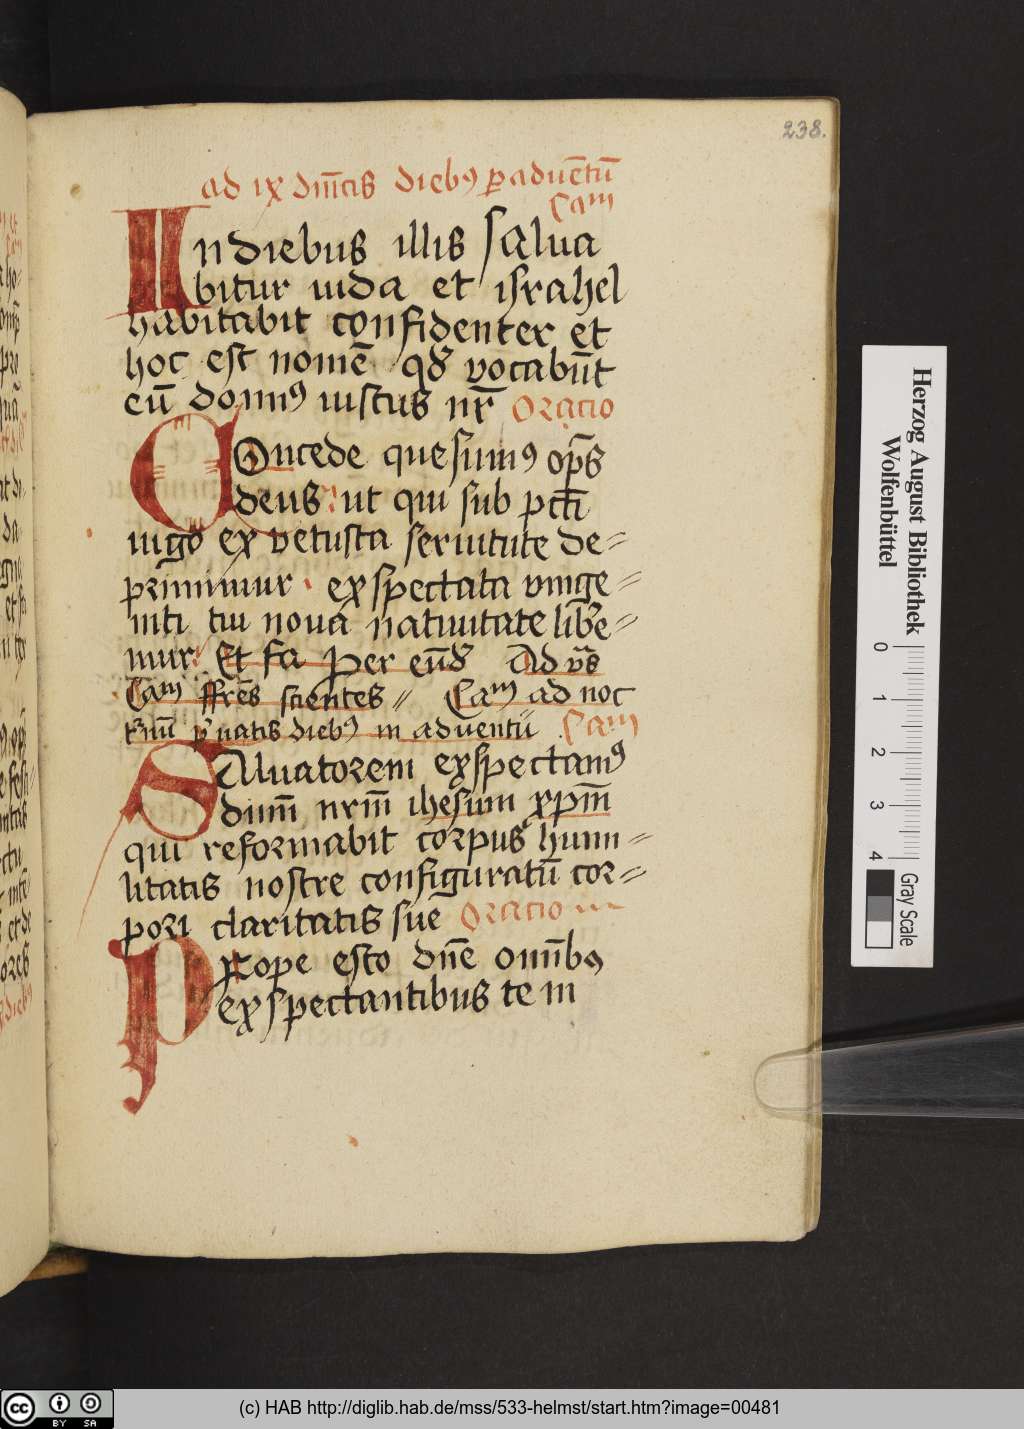 238.
ad ix dm̄cis diebꝰ ꝑ aduētū
Cam
In diebus illis salua
bitur iuda et israhel
habitabit confidenter et
hoc est nomē qd vocabūt
eū domnꝰ iustus nr̄ Oracio
Concede quesumꝰ op̄s
deus ut qui sub pcc̄i
iugo ex vetusta seruitute de⸗
primimur exspectata vnige⸗
niti tui noua natiuitate libe⸗
mur Et fa Per eūd Ad vs̄
Cam ffrēs scientes Cam ad noc
pͥuatis diebꝰ in aduentu Cam
Saluatorem exspectamꝰ
dnm̄ nrm̄ ihesum xpm̄
qui reformabit corpus humi⸗
litatis nostre configuratū cor⸗
pori claritatis sue Oracio
Prope esto dn̄e omībꝰ
exspectantibus te in
Herzog August Bibliothek
Wolfenbüttel
0 1 2 3 4
Gray Scale
cc BY SA
(c) HAB http://diglib.hab.de/mss/533-helmst/start.htm?image=00481